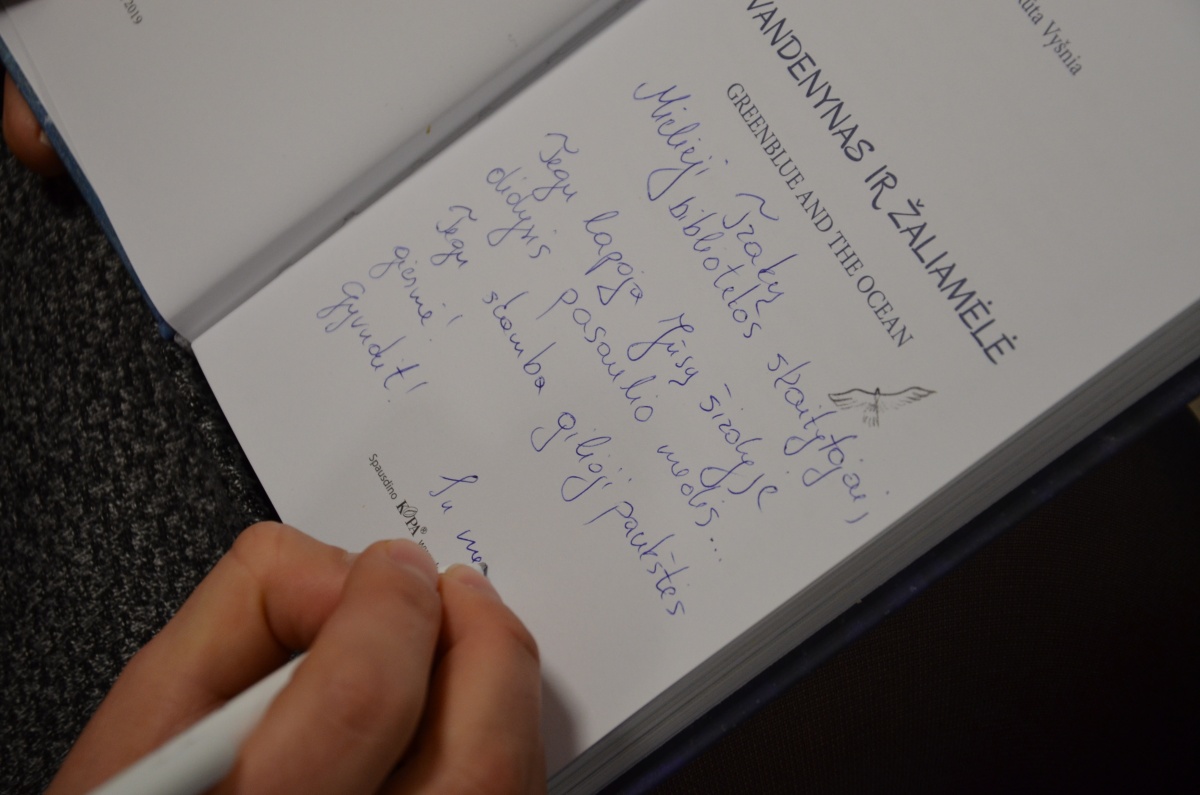 2019
ūta Vyšnia
VANDENYNAS IR ŽALIAMĖLĖ
GREENBLUE AND THE OCEAN
Mielieji Trakų
bibliotekos skaitytojai,
Tegu lapoja Jūsų širdyje
didysis pasaulio medis...
Tegu skamba gilioji paukštės
giesmė!
Gyvuokit!
Su me
Spausdino KOPA®